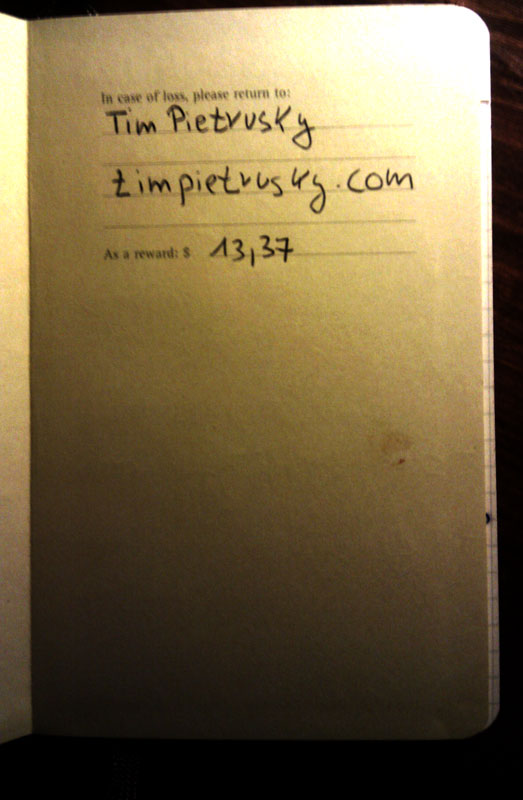 In case of loss, please return to:
Tim Pietrusky
timpietrusky.com
As a reward: $ 13,37